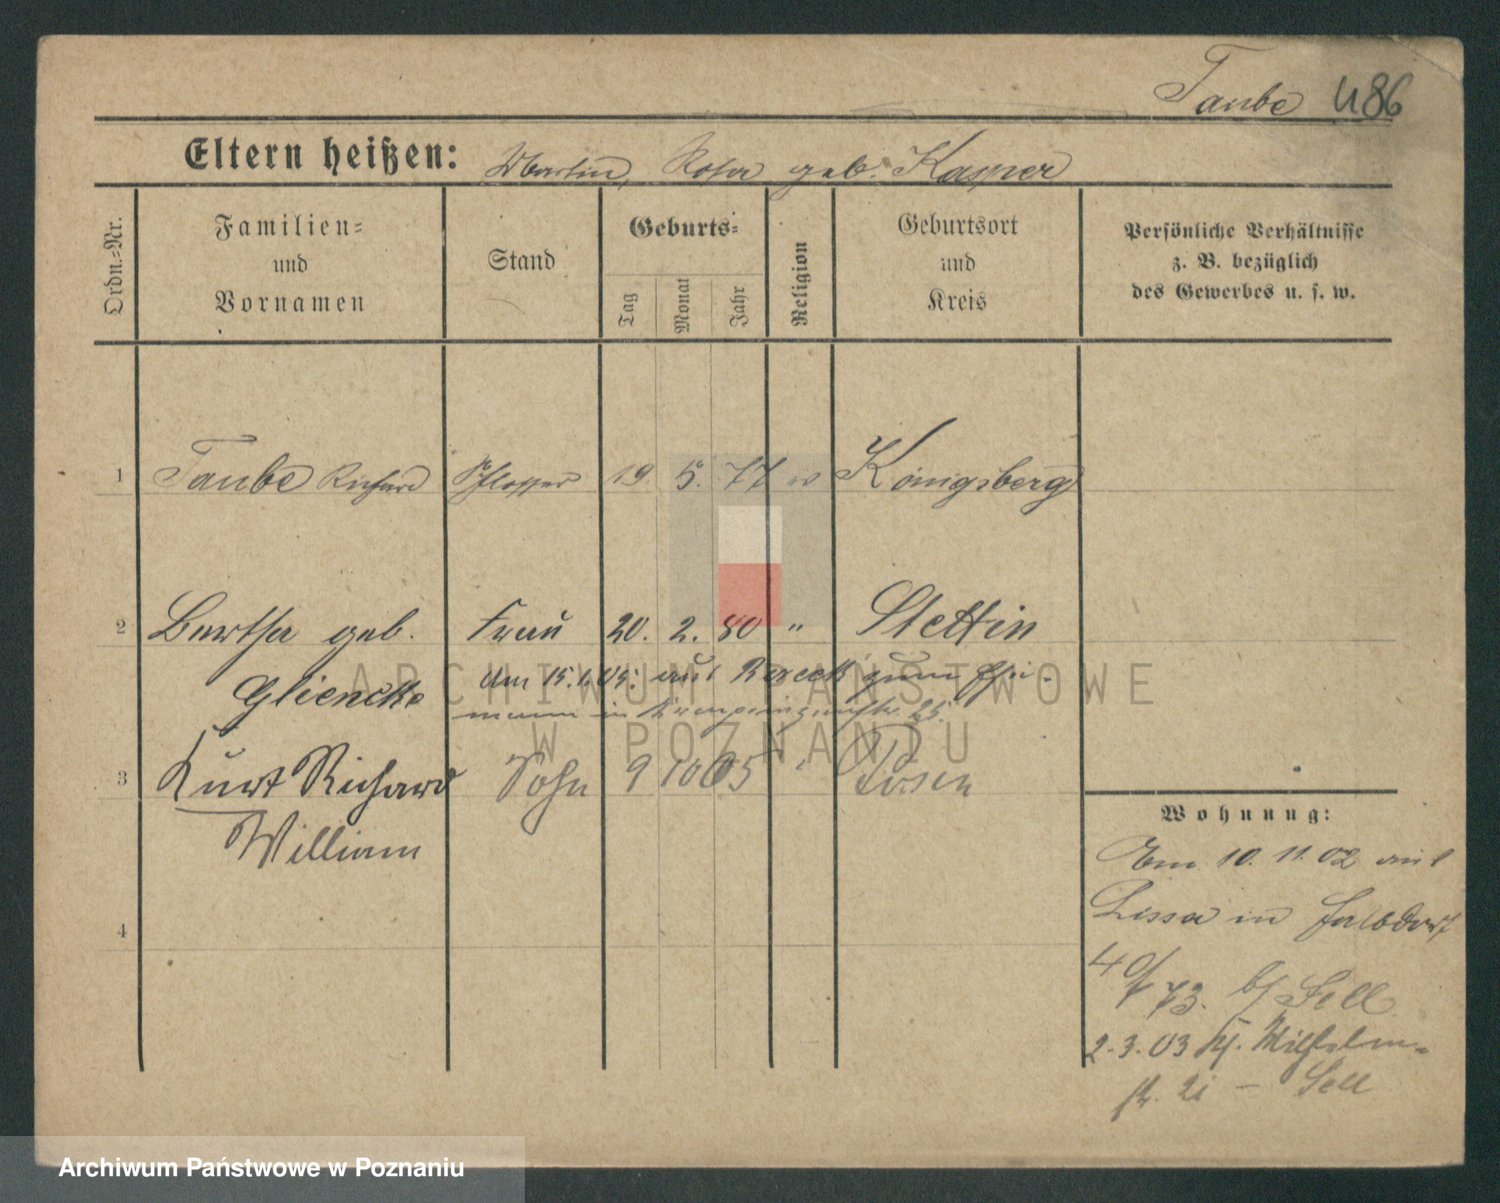 Taube 486
Eltern heißen: Martin, Rosa geb. Kasper
Ordn.-Nr.
Familien-
und
Vornamen
Stand
Geburts-
Tag
Monat
Jahr
Religion
Geburtsort
und
Kreis
Persönliche Verhältnisse
z. B. bezüglich
des Gewerbes u. s. w.
1 Taube Richard Schlosser 19. 5. 77 Königsberg
2 Bertha geb. Frau 20. 2. 80 " Stettin
Glienicke Am 15.1.05. aus zum Ehe-
mann in 25.
3 Kurt Richard Sohn 9 10 05 " Posen
William
4
Wohnung:
Am 10. 11. 02 aus
Lissa in
40/73. b/ Sell
2.3.03 Wilhelm-
str. 21 – Sell
ARCHIWUM PAŃSTWOWE
W POZNANIU
Archiwum Państwowe w Poznaniu